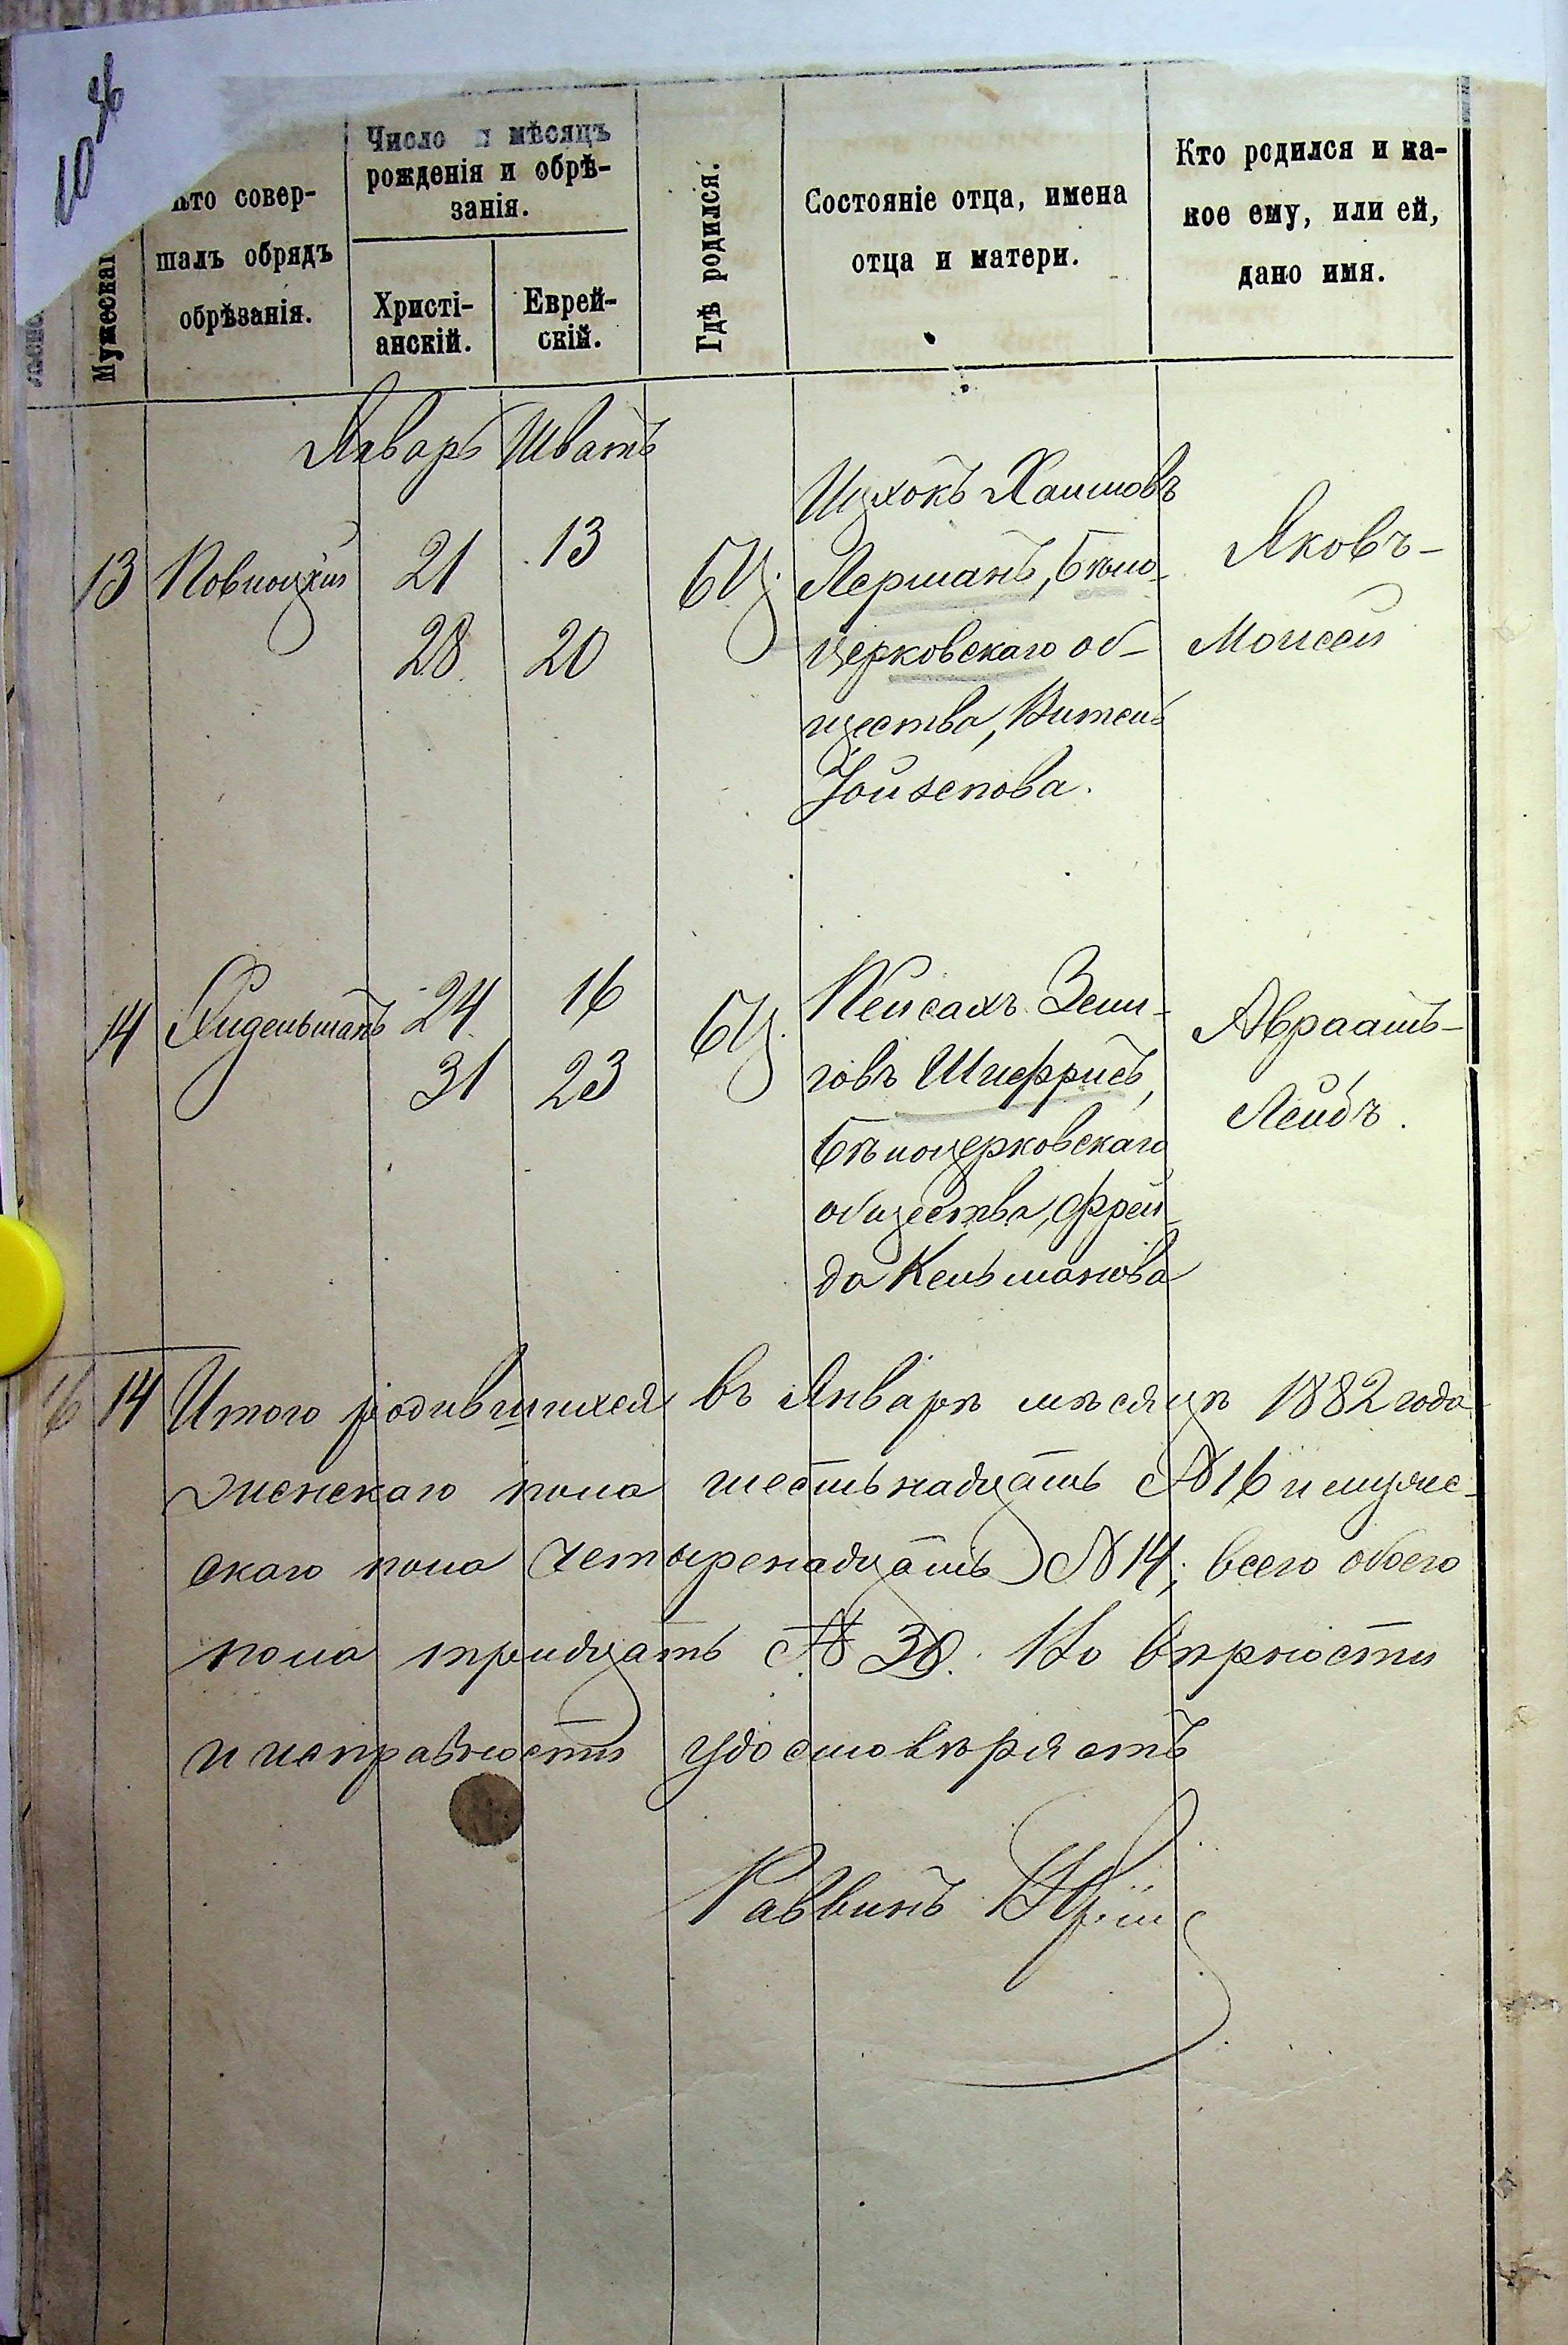 10 об
Мужескаг
Кто совер-
шалъ обрядъ
обрѣзанія.
Число и мѣсяцъ
рожденія и обрѣ-
занія.
Христі-
анскій.
Еврей-
скій.
Гдѣ родился.
Состояніе отца, имена
отца и матери.
Кто родился и ка-
кое ему, или ей,
дано имя.
Январь Шватъ
13
21 13
28 20
БЦ.
Ицхокъ Хаимовъ
Лерманъ, Бѣло-
церковскаго об-
щества,
Іойсепова.
Яковъ-
Моисей
14 Хидельманъ
24 16
31 23
БЦ.
Пейсахъ Зели-
говъ Шифринъ,
Бѣлоцерковскаго
общества, Фрей-
да Кельманова
Авраамъ-
Лейбъ.
16 14 Итого родившихся въ Январѣ мѣсяцѣ 1882 года
женскаго пола шестьнадцать №16 и муже-
скаго пола четыренадцать №14; всего обоего
пола тридцать № 30. Во вѣрности
и исправности удостовѣряетъ
Раввинъ